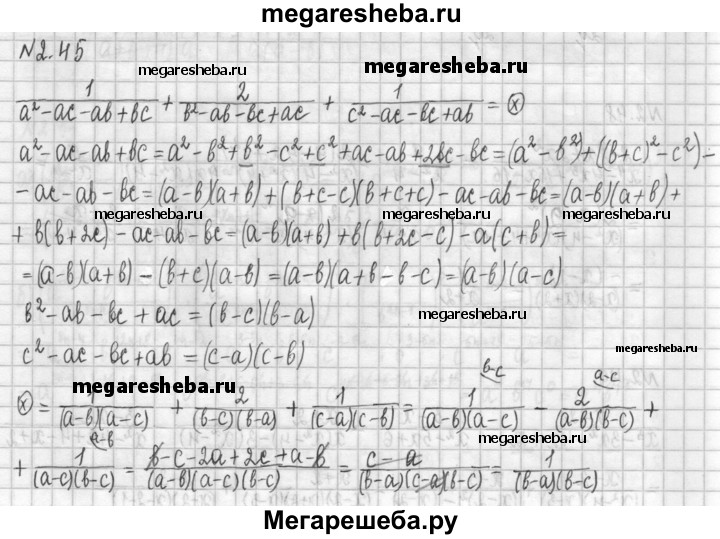 megaresheba.ru
N2.45
megaresheba.ru megaresheba.ru
1/(a²-ac-ab+bc) + 2/(b²-ab-bc+ac) + 1/(c²-ac-bc+ab) = ⓧ
a²-ac-ab+bc=a²-b²+b²-c²+c²+ac-ab+2bc-bc=(a²-b²)+((b+c)²-c²)-
-ac-ab-bc=(a-b)(a+b)+(b+c-c)(b+c+c)-ac-ab-bc=(a-b)(a+b)+
megaresheba.ru megaresheba.ru megaresheba.ru
+b(b+2c)-ac-ab-bc=(a-b)(a+b)+b(b+2c-c)-a(c+b)=
=(a-b)(a+b)-(b+c)(a-b)=(a-b)(a+b-b-c)=(a-b)(a-c)
b²-ab-bc+ac=(b-c)(b-a)
megaresheba.ru
c²-ac-bc+ab=(c-a)(c-b)
megaresheba.ru
megaresheba.ru
b-c a-c
ⓧ = 1/((a-b)(a-c)) + 2/((b-c)(b-a)) + 1/((c-a)(c-b)) = 1/((a-b)(a-c)) - 2/((a-b)(b-c)) +
megaresheba.ru
a-b
+ 1/((a-c)(b-c)) = (b-c-2a+2c+a-b)/((a-b)(a-c)(b-c)) = (c-a)/((b-a)(c-a)(b-c)) = 1/((b-a)(b-c))
Мегарешеба.ру